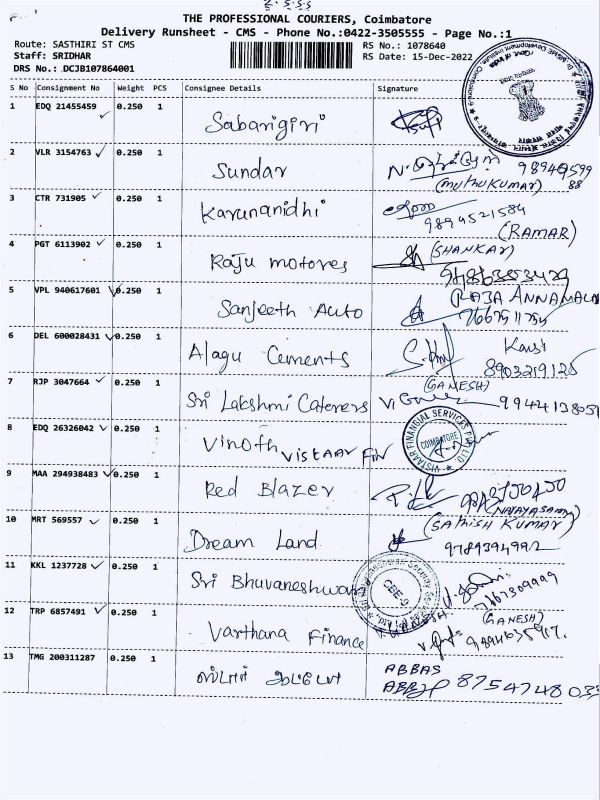 THE PROFESSIONAL COURIERS, Coimbatore
Delivery Runsheet - CMS - Phone No.:0422-3505555 - Page No.:1
Route: SASTHIRI ST CMS RS No.: 1078640
Staff: SRIDHAR RS Date: 15-Dec-2022
DRS No.: DCJB107864001
S No Consignment No Weight PCS Consignee Details Signature
1 EDQ 21455459 0.250 1 Sabarigiri
2 VLR 3154763 0.250 1 Sundar
(MUTHUKUMAR)
3 CTR 731905 0.250 1 Karunanidhi 9894521584
(RAMAR)
4 PGT 6113902 0.250 1 Raju motores (SHANKAR)
5 VPL 940617601 0.250 1 Sanjeeth Auto RAJA ANNAMALAI
6 DEL 600028431 0.250 1 Alagu Cements
(GANESH)
7 RJP 3047664 0.250 1 Sri Lakshmi Caterers
8 EDQ 26326042 0.250 1 Vinoth Vistaar Fin
VISTAAR FINANCIAL SERVICES PVT LTD
COIMBATORE
9 MAA 294938483 0.250 1 Red Blazer
10 MRT 569557 0.250 1 Dream Land (SATHISH KUMAR)
9789394992
11 KKL 1237728 0.250 1 Sri Bhuvaneshwari
CBE-9
12 TRP 6857491 0.250 1 Varthana Finance (GANESH)
13 TMG 200311287 0.250 1 ஸ்டார் ABBAS
8754748033